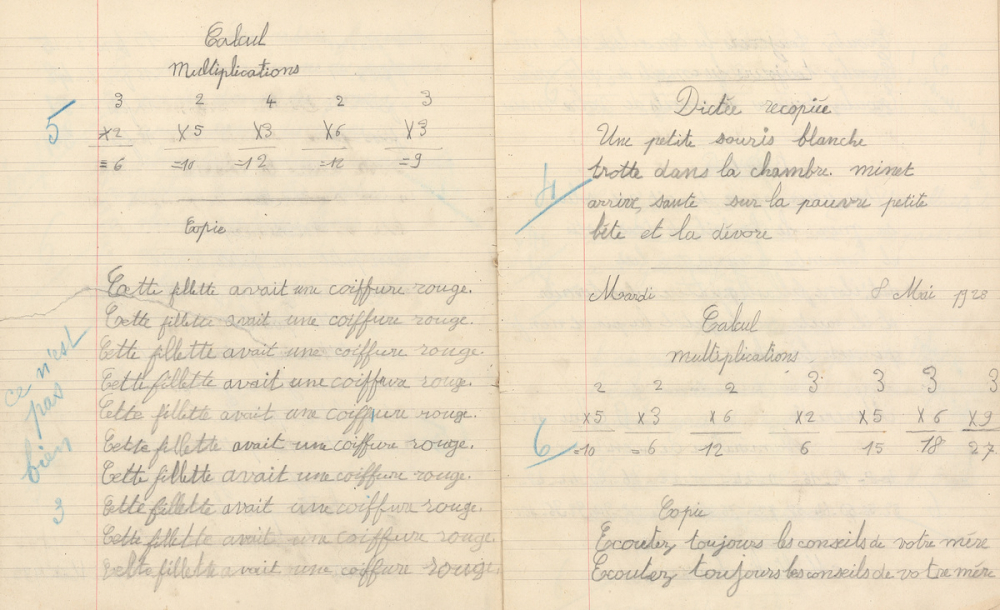 Calcul
Multiplications
3 2 4 2 3
5
×2 ×5 ×3 ×6 ×3
= 6 =10 =12 =12 =9
Copie
Cette fillette avait une coiffure rouge.
Cette fillette avait une coiffure rouge.
Cette fillette avait une coiffure rouge.
Cette fillette avait une coiffure rouge.
Cette fillette avait une coiffure rouge.
Cette fillette avait une coiffure rouge.
Cette fillette avait une coiffure rouge.
Cette fillette avait une coiffure rouge.
Cette fillette avait une coiffure rouge.
Cette fillette avait une coiffure rouge.
ce n'est
pas
bien
3
Dictée recopiée
Une petite souris blanche
trotte dans la chambre. minet
4
arrive, saute sur la pauvre petite
bête et la dévore
Mardi 8 Mai 1928
Calcul
multiplications
2 2 2 3 3 3 3
×5 ×3 ×6 ×2 ×5 ×6 ×9
6
=10 =6 12 6 15 18 27
Copie
Ecoutez toujours les conseils de votre mère
Ecoutez toujours les conseils de votre mère